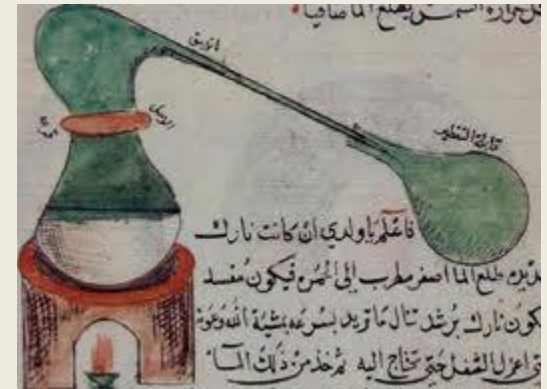 حرارة الشمس يطلع الما صافيا
انبيق
قابلة التقطير
فاعلم يا ولدي ان كانت نارك
طلع الما اصفر مطرب الى الحمره فيكون مفسد
نارك برشد تنال ما تريد بسرعه بمشيئة الله وعونه
اعزل الثفل حتى تحتاج اليه ثم خذ من ذلك الما